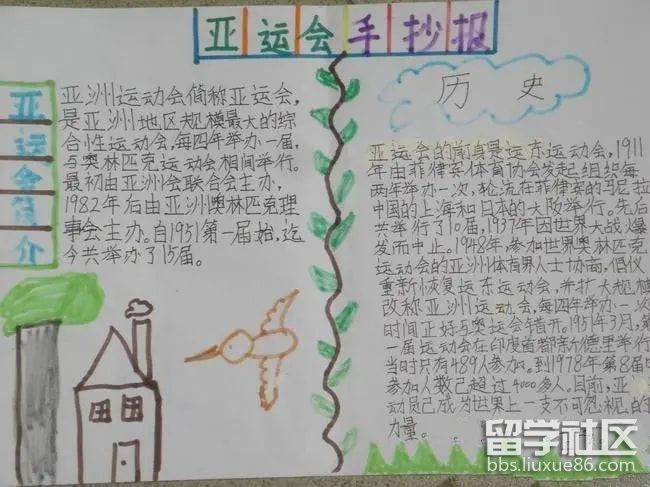 亚运会手抄报
亚运会简介
亚洲运动会简称亚运会，
是亚洲地区规模最大的综
合性运动会，每四年举办一届，
与奥林匹克运动会相间举行。
最初由亚洲会联合会主办，
1982年后由亚洲奥林匹克理
事会主办。自1951第一届始，迄
今共举办了15届。
历史
亚运会的前身是远东运动会，1911
年由菲律宾体育协会发起组织每
两年举办一次，轮流在菲律宾的马尼拉
中国的上海和日本的大阪举行。先后
共举行了10届，1937年因世界大战爆
发而中止。1948年，参加世界奥林匹克
运动会的亚洲体育界人士协商，倡仪
重新恢复远东运动会，并扩大规模
改称亚洲运动会，每四年举办一次
时间正好与奥运会错开。1951年3月，第
一届运动会在印度首都新德里举行
当时只有489人参加。到1978年第8届时
参加人数已超过4000多人。目前，亚
动员已成为世界上一支不可忽视的
力量。
留学社区
bbs.liuxue86.com